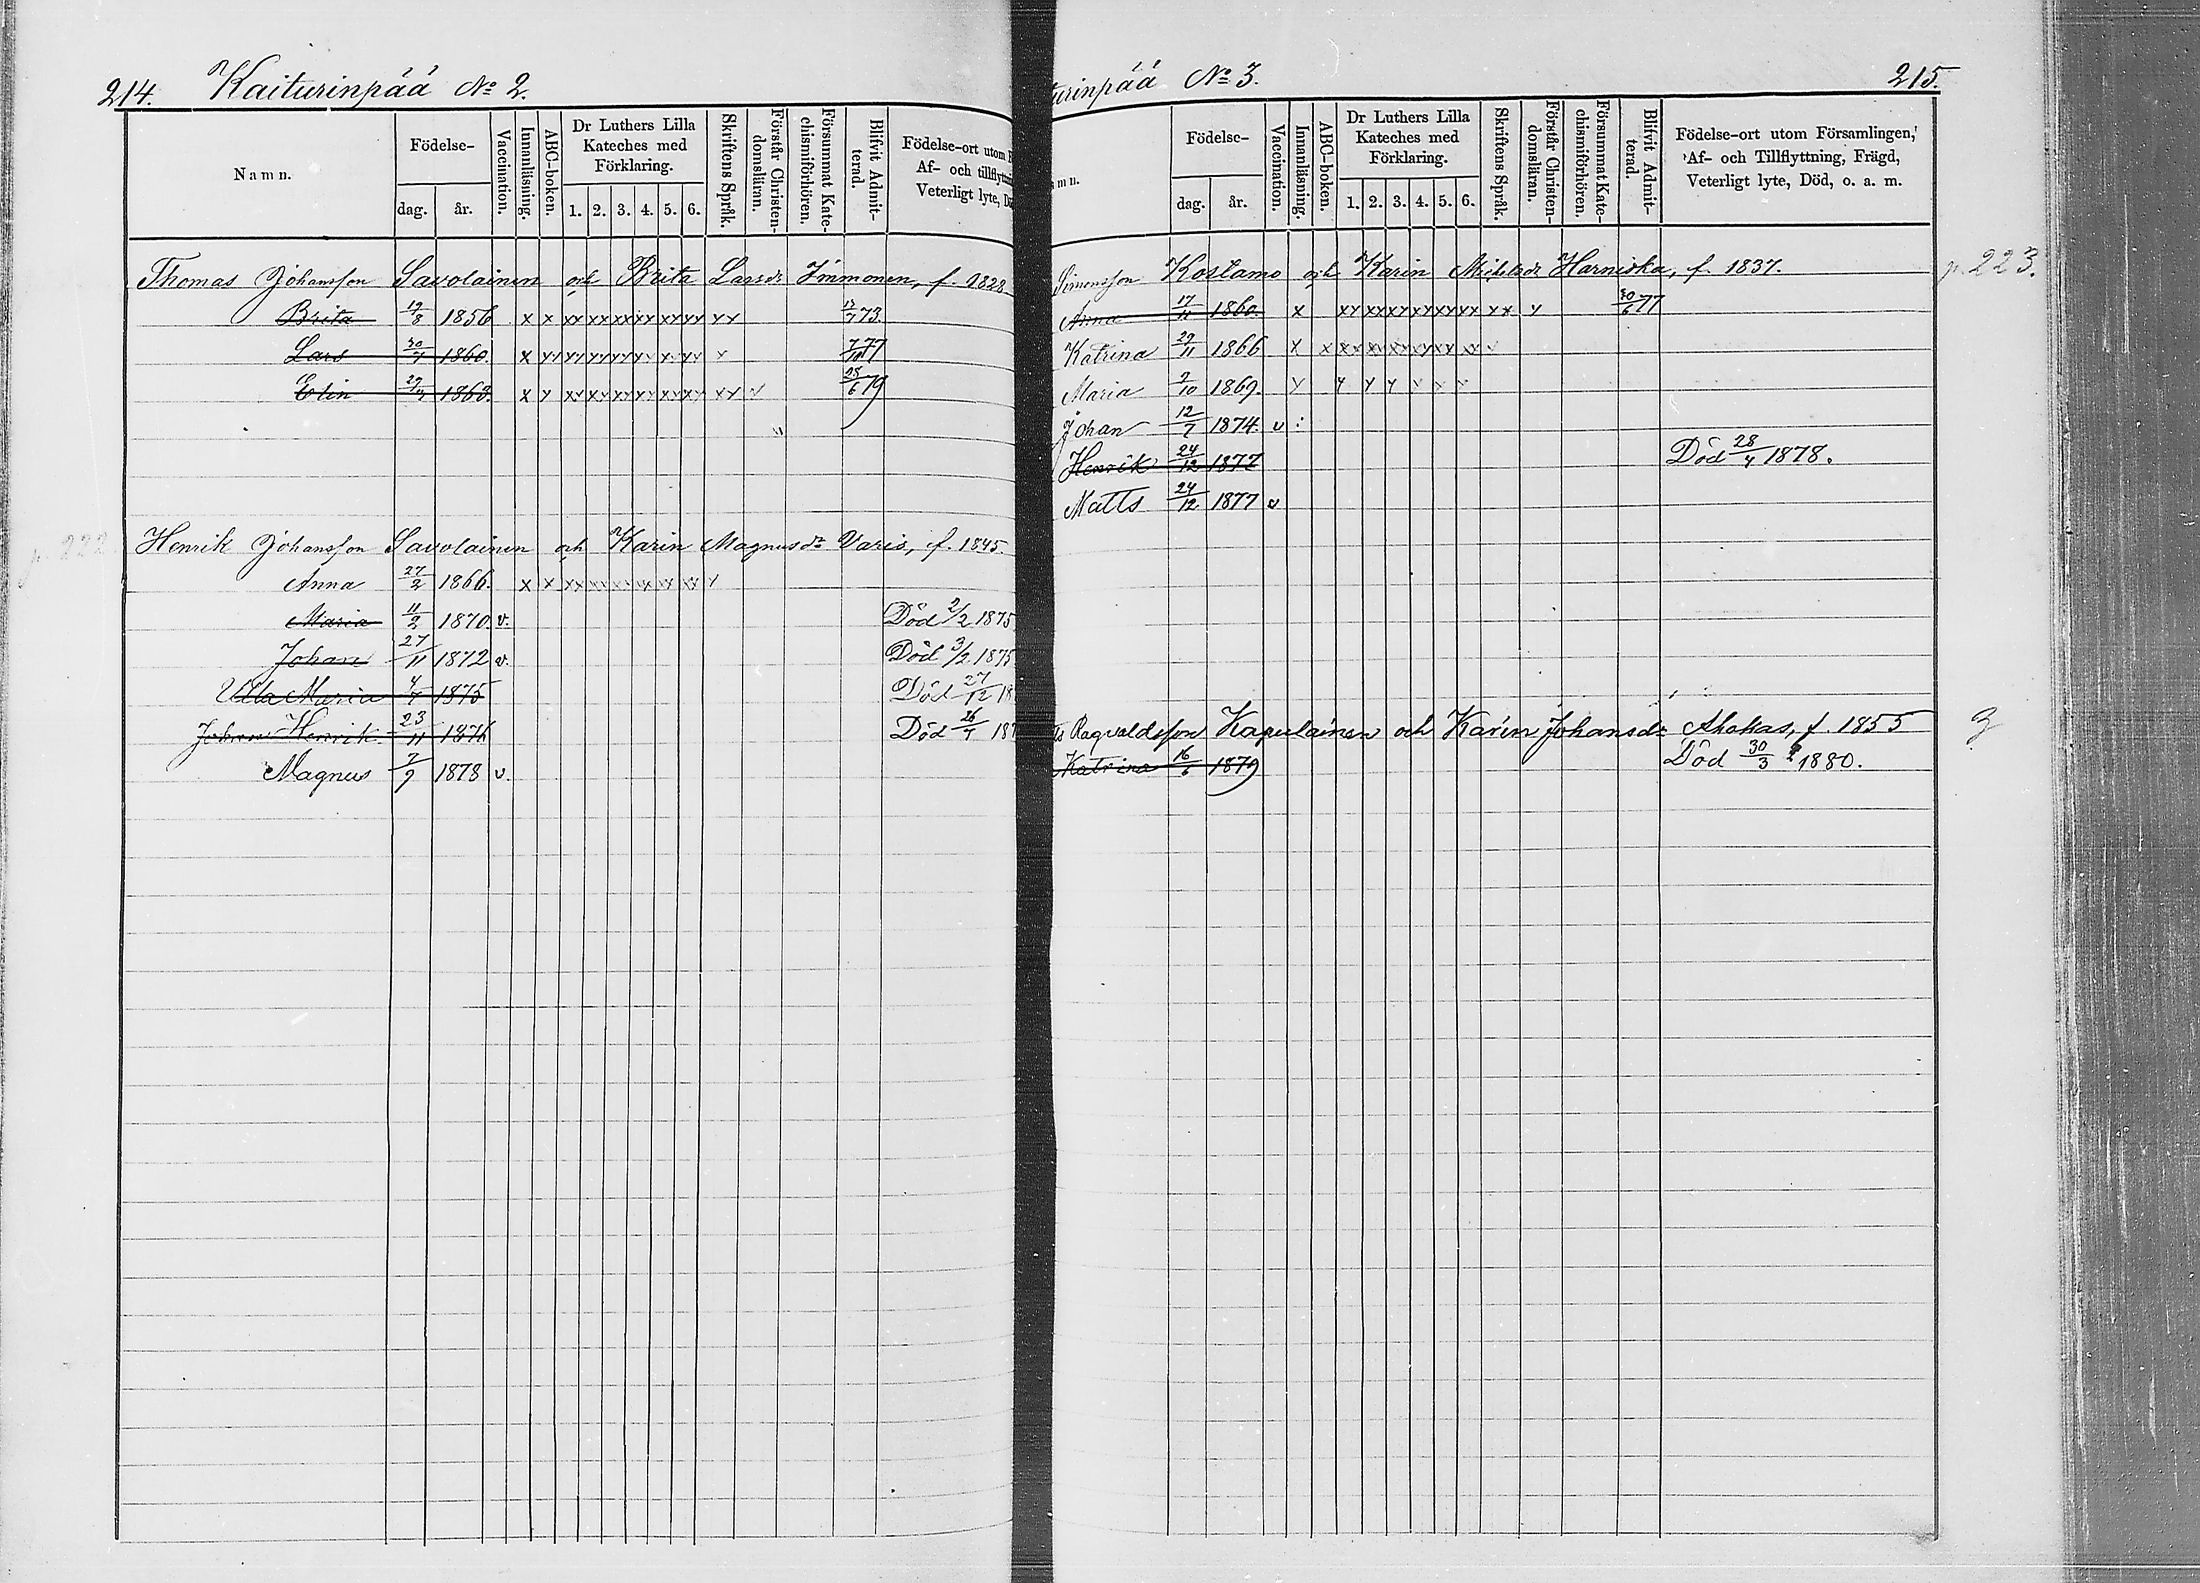 214. Kaiturinpää No 2.
Namn. Födelse- dag. år. Vaccination. Innanläsning. ABC-boken. Dr Luthers Lilla Kateches med Förklaring. 1. 2. 3. 4. 5. 6. Skriftens Språk. Förstår Christen-domsläran. Försummat Kate-chismiförhören. Blifvit Admit-terad. Födelse-ort utom Af- och tillflytt Veterligt lyte,
Thomas Johansson Savolainen och Brita Larsdr Immonen, f. 1828
Brita 19/8 1856 x x xx xx xx xx xx xx xx 13/7 73.
Lars 30/7 1860. 7/10 77
Elin 1863. 25/6 79
p. 222
Henrik Johansson Savolainen och Karin Magnusdr Varis, f. 1845.
Anna 27/2 1866. x x
Maria 11/2 1870. v. Död 2/2 1875
Johan 27/11 1872 v. Död 3/2 1875
Ulla Maria 4/7 1875 Död 27/12 18
Johan Henrik 23/11 1876 Död 26/7 187
Magnus 7/9 1878 v.
urinpää No 3. 215.
mn. Födelse- dag. år. Vaccination. Innanläsning. ABC-boken. Dr Luthers Lilla Kateches med Förklaring. 1. 2. 3. 4. 5. 6. Skriftens Språk. Förstår Christen-domsläran. Försummat Kate-chismiförhören. Blifvit Admit-terad. Födelse-ort utom Församlingen, Af- och Tillflyttning, Frägd, Veterligt lyte, Död, o. a. m.
Simonsson Kostamo och Karin Michelsdr Harniska, f. 1837. p. 223.
Anna 17/11 1860. x 30/6 77
Katrina 29/11 1866
Maria 9/10 1869.
Johan 12/7 1874. v
Henrik 24/12 1877 Död 28/4 1878.
Matts 24/12 1877 v
Ragvaldsson Kapulainen och Karin Johansdr Ahokas, f. 1855
Katrina 16/6 1879 Död 30/3 1880.